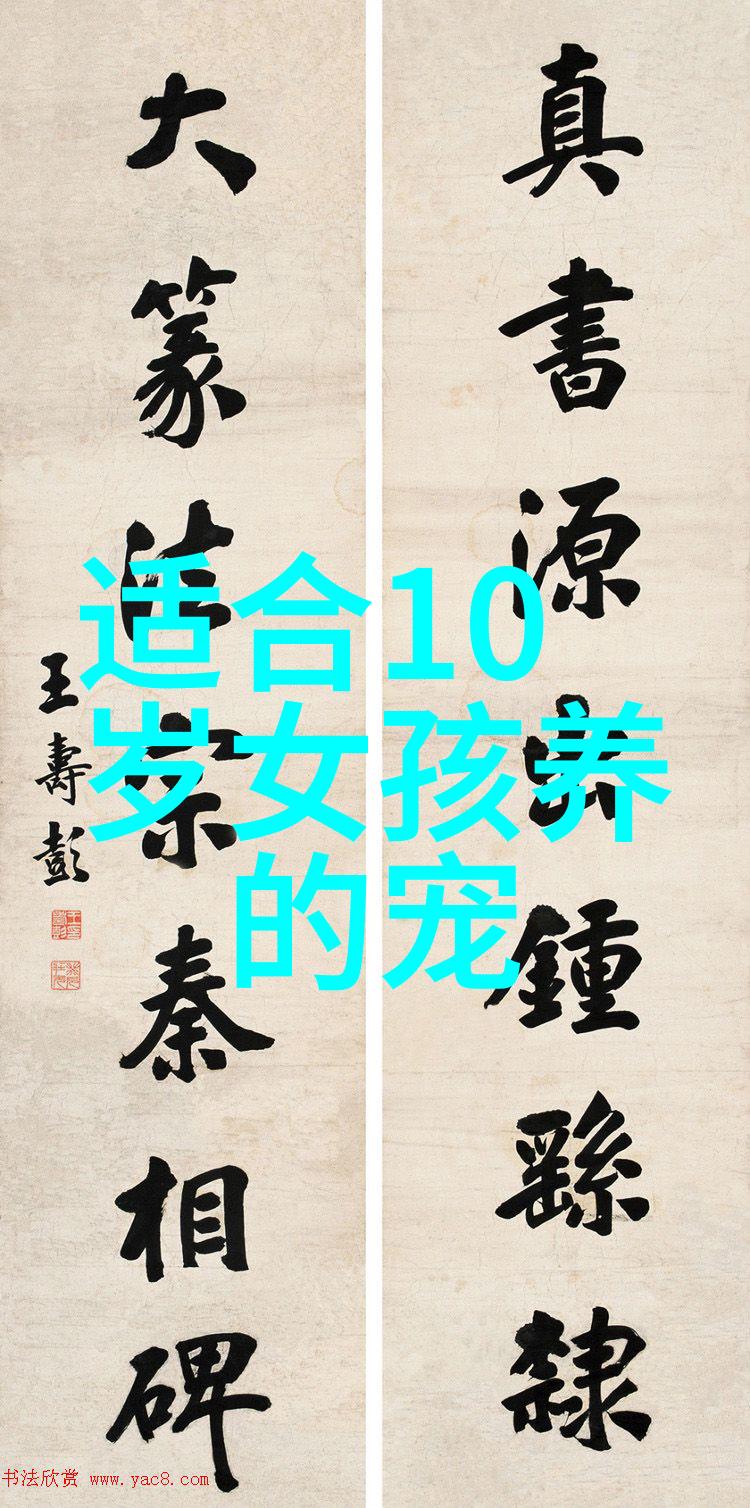 真書源出鍾繇隸
大篆法宗秦相碑
王壽彭
适合10
岁女孩养
的宠
书法欣赏 www.yac8.com